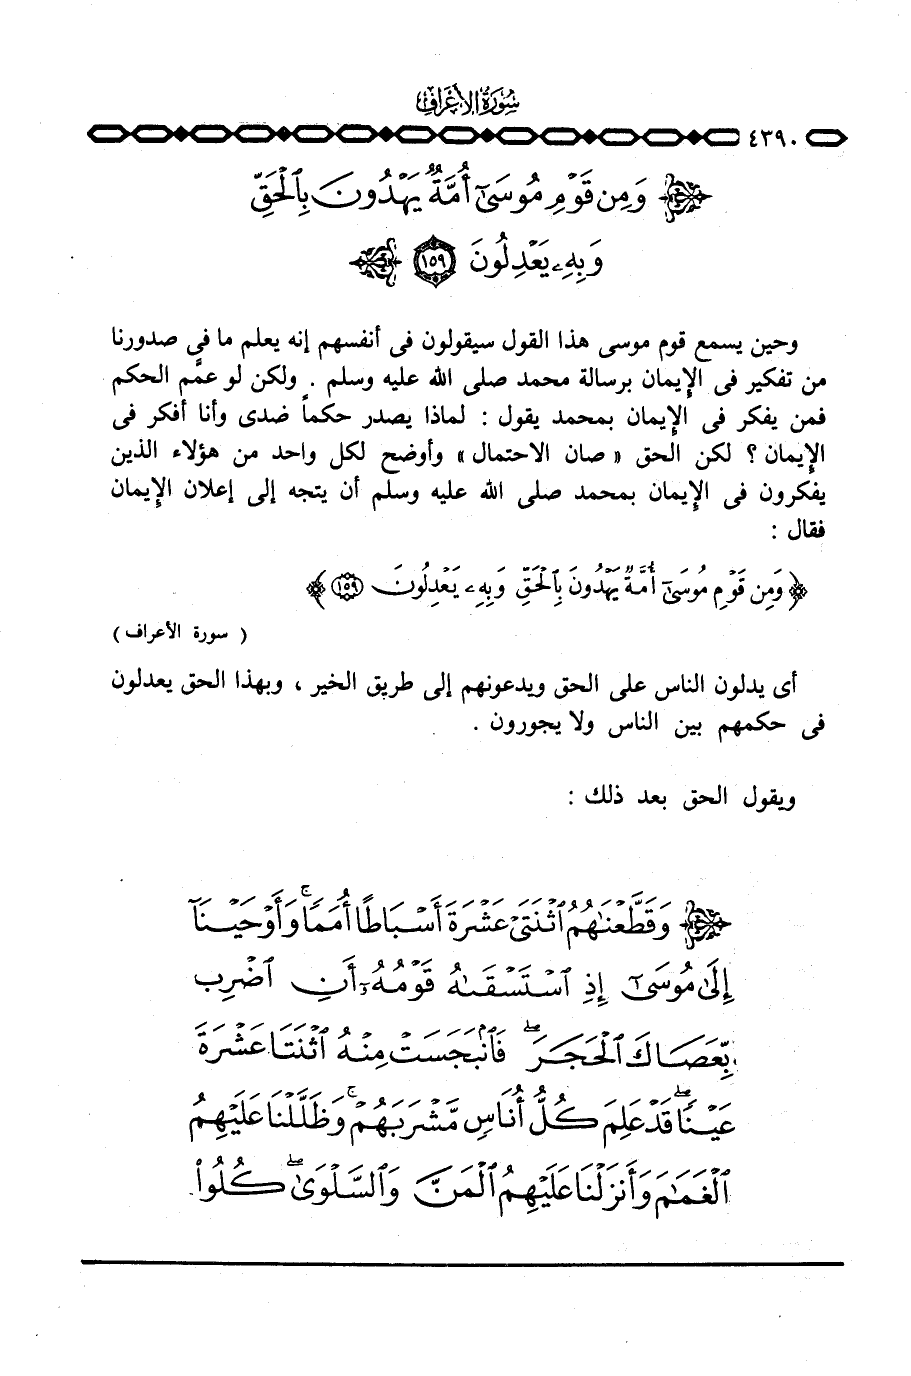 سُورَةُ الأَعْرَافِ
٤٣٩٠
وَمِن قَوْمِ مُوسَىٰٓ أُمَّةٌ يَهْدُونَ بِٱلْحَقِّ
وَبِهِۦ يَعْدِلُونَ ١٥٩
وحين يسمع قوم موسى هذا القول سيقولون فى أنفسهم إنه يعلم ما فى صدورنا
من تفكير فى الإيمان برسالة محمد صلى الله عليه وسلم . ولكن لو عمَّم الحكم
فمن يفكر فى الإيمان بمحمد يقول : لماذا يصدر حكماً ضدى وأنا أفكر فى
الإيمان ؟ لكن الحق « صان الاحتمال » وأوضح لكل واحد من هؤلاء الذين
يفكرون فى الإيمان بمحمد صلى الله عليه وسلم أن يتجه إلى إعلان الإيمان
فقال :
﴿ وَمِن قَوْمِ مُوسَىٰٓ أُمَّةٌ يَهْدُونَ بِٱلْحَقِّ وَبِهِۦ يَعْدِلُونَ ١٥٩ ﴾
( سورة الأعراف )
أى يدلون الناس على الحق ويدعونهم إلى طريق الخير ، وبهذا الحق يعدلون
فى حكمهم بين الناس ولا يجورون .
ويقول الحق بعد ذلك :
وَقَطَّعْنَٰهُمُ ٱثْنَتَىْ عَشْرَةَ أَسْبَاطًا أُمَمًا ۚ وَأَوْحَيْنَآ
إِلَىٰ مُوسَىٰٓ إِذِ ٱسْتَسْقَىٰهُ قَوْمُهُۥٓ أَنِ ٱضْرِب
بِّعَصَاكَ ٱلْحَجَرَ ۖ فَٱنۢبَجَسَتْ مِنْهُ ٱثْنَتَا عَشْرَةَ
عَيْنًا ۖ قَدْ عَلِمَ كُلُّ أُنَاسٍ مَّشْرَبَهُمْ ۚ وَظَلَّلْنَا عَلَيْهِمُ
ٱلْغَمَٰمَ وَأَنزَلْنَا عَلَيْهِمُ ٱلْمَنَّ وَٱلسَّلْوَىٰ ۖ كُلُوا۟